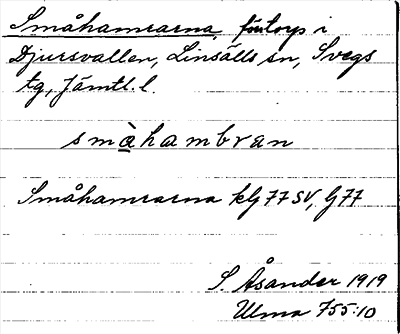 Småhamrarna, fäntorp i
Djursvallen, Linsälls sn, Svegs
tg, Jämtl. l.
småhambran
Småhamrarna kbl 77 SV, G 77
S. Åsander 1919
Ulma 755:10